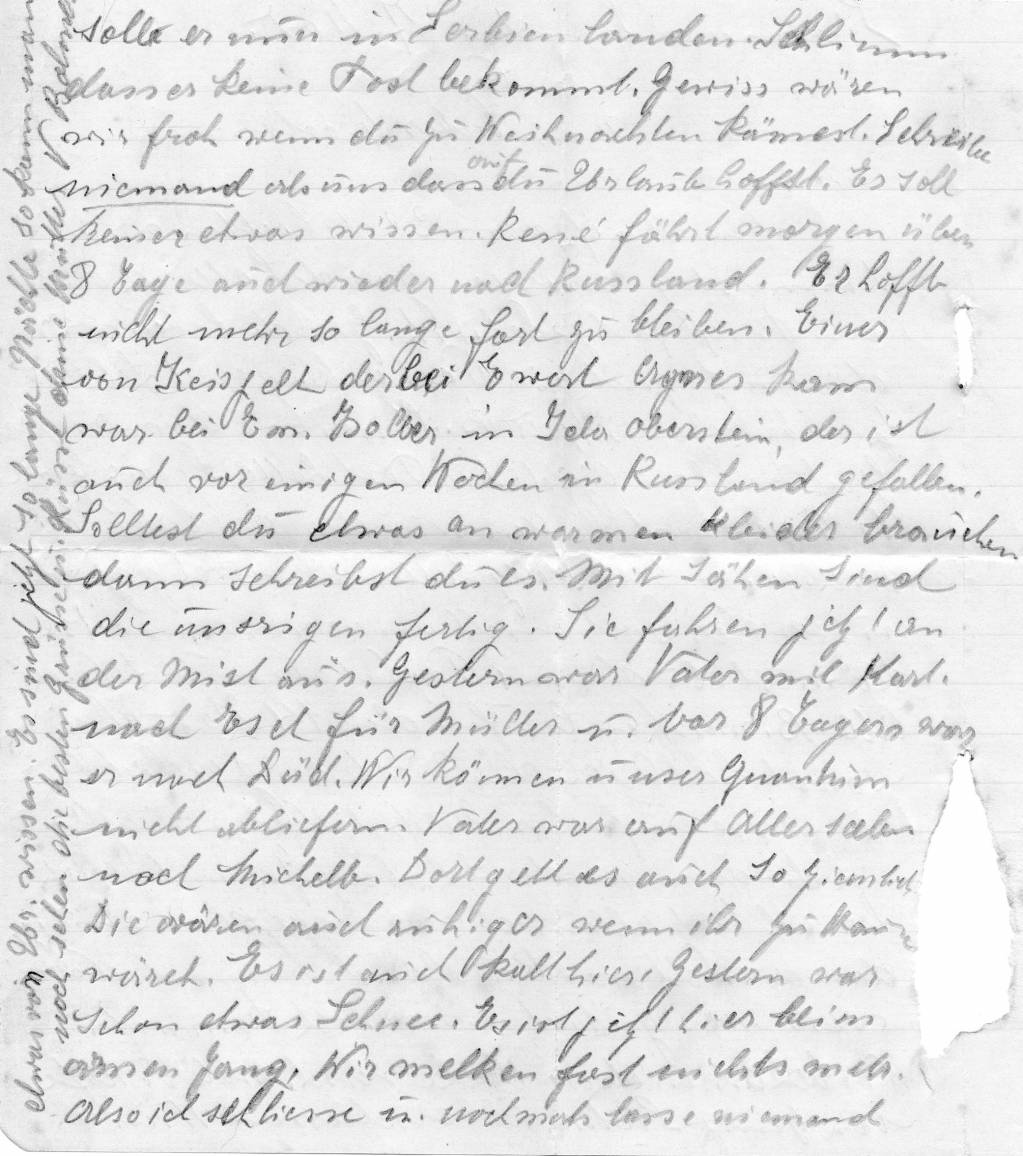 solle er nun in Serbien landen. Schlimm
dass er keine Post bekommt. Gewiss wären
wir froh wenn du zu Weihnachten kämest. Schreibe
niemand als uns dass du auf Urlaub hoffst. Es soll
keiner etwas wissen. René fährt morgen über
8 Tage auch wieder nach Russland. Er hofft
nicht mehr so lange fort zu bleiben. Einer
von Keispelt der bei Ewert Agnes kam
war bei Em. in Idar oberstein, der ist
auch vor einigen Wochen in Russland gefallen.
Solltest du etwas an warmen Kleider brauchen
dann schreibst du es. Mit Sähen sind
die unsrigen fertig. Sie fahren jetzt an
der Mist aus. Gestern war Vater mit Kart.
nach Esch für Müller u. vor 8 Tagen war
er nach Düd. Wir können unser Quantum
nicht abliefern. Vater war auf Allerselen
nach Michelb. Dort geht es auch so ziemlich
Die wären auch ruhiger wenn ihr zu Hause
wäret. Es ist auch kalt hier. Gestern war
schon etwas Schnee. Es ist jetzt hier beim
armen Jang. Wir melken fast nichts mehr.
Also ich schliesse u. nochmals lasse niemand
etwas vom Url. wissen. Es sind jetzt so lange Nächte so kann man
noch sehen die besten Grüsse u. Küsse deine Mutter V.